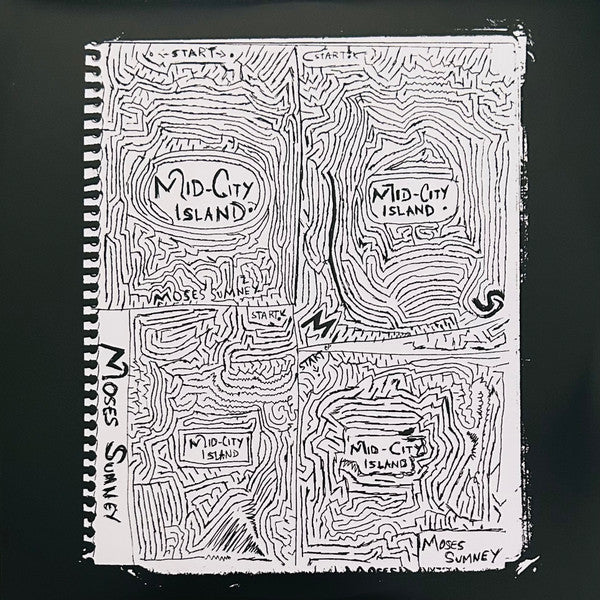 START
MID-CITY
ISLAND
MOSES SUMNEY
START
MID-CITY
ISLAND
M
S
MOSES SUMNEY
START
MID-CITY
ISLAND
START
MID-CITY
ISLAND
MOSES
SUMNEY
MOSES